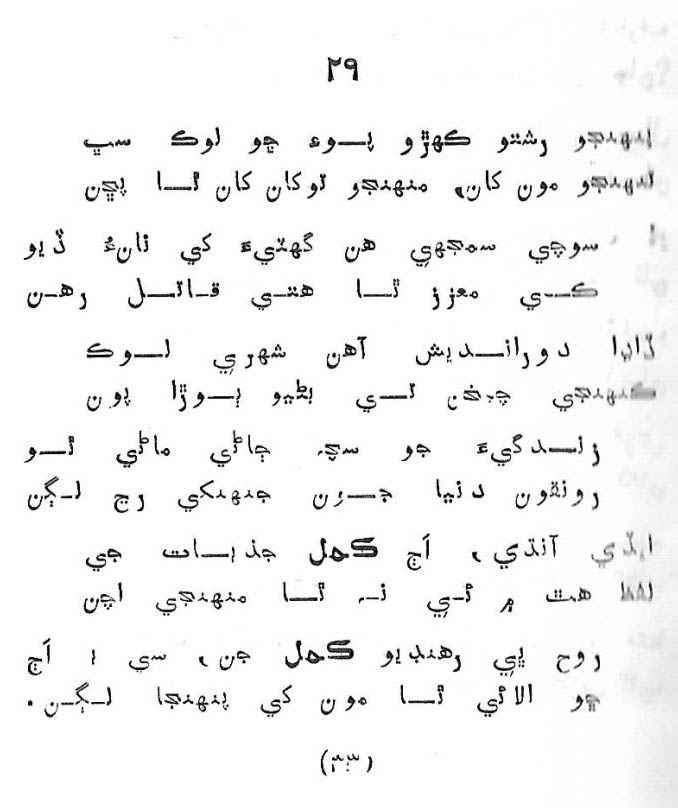 ۲۹
پنهنجو رشتو ڪهڙو پوءِ ڇو لوڪ سڀ
تنهنجو مون کان، منهنجو توکان کان ٿا پڇن
سوچي سمجهي هن گهٽيءَ کي نانءُ ڏيو
ڪي معزز ٿا هتي قاتل رهن
ڏاڍا دورانديش آهن شهري لوڪ
ڪنهنجي چيخن تي ٻڻيو ٻوڙا پون
زندگيءَ جو سچ ڄاڻي ماڻي ٿو
رونقون دنيا جون جنهنکي رڃ لڳن
ايڏي آنڌي، اَڄ ڪهل جذبات جي
لفظ هٿ ۾ ئي نہ ٿا منهنجي اچن
روح ٻي رهنديو ڪهل جن، سي ۽ اَڄ
ڇو الائي ٿا مون کي پنهنجا لڳن.
(۳۳)